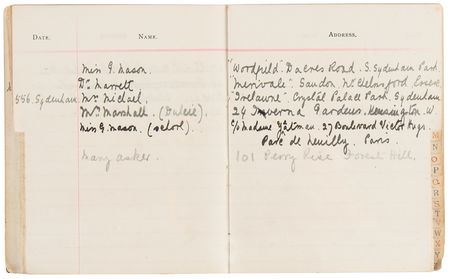 DATE. NAME. ADDRESS.
Miss G. Mason. "Woodfield" Dacres Road. S. Sydenham Park.
Dr. Marrett "Merivale". Sandon. Nr Chelmsford Essex
556. Sydenham Mr. Michael. "Trelawne". Crystal Palace Park. Sydenham
Mrs. Marshall. (Dulcie). 24 Inverna Gardens. Kensington. W.
Miss G. Mason. (School). c/o Madame Yatman. 27 Boulevard Victor Hugo.
Parc de Neuilly. Paris.
Mary Asker. 101 Perry Rise Forest Hill.
M
N
O
P
Q
R
S
T
V
W
X
Y